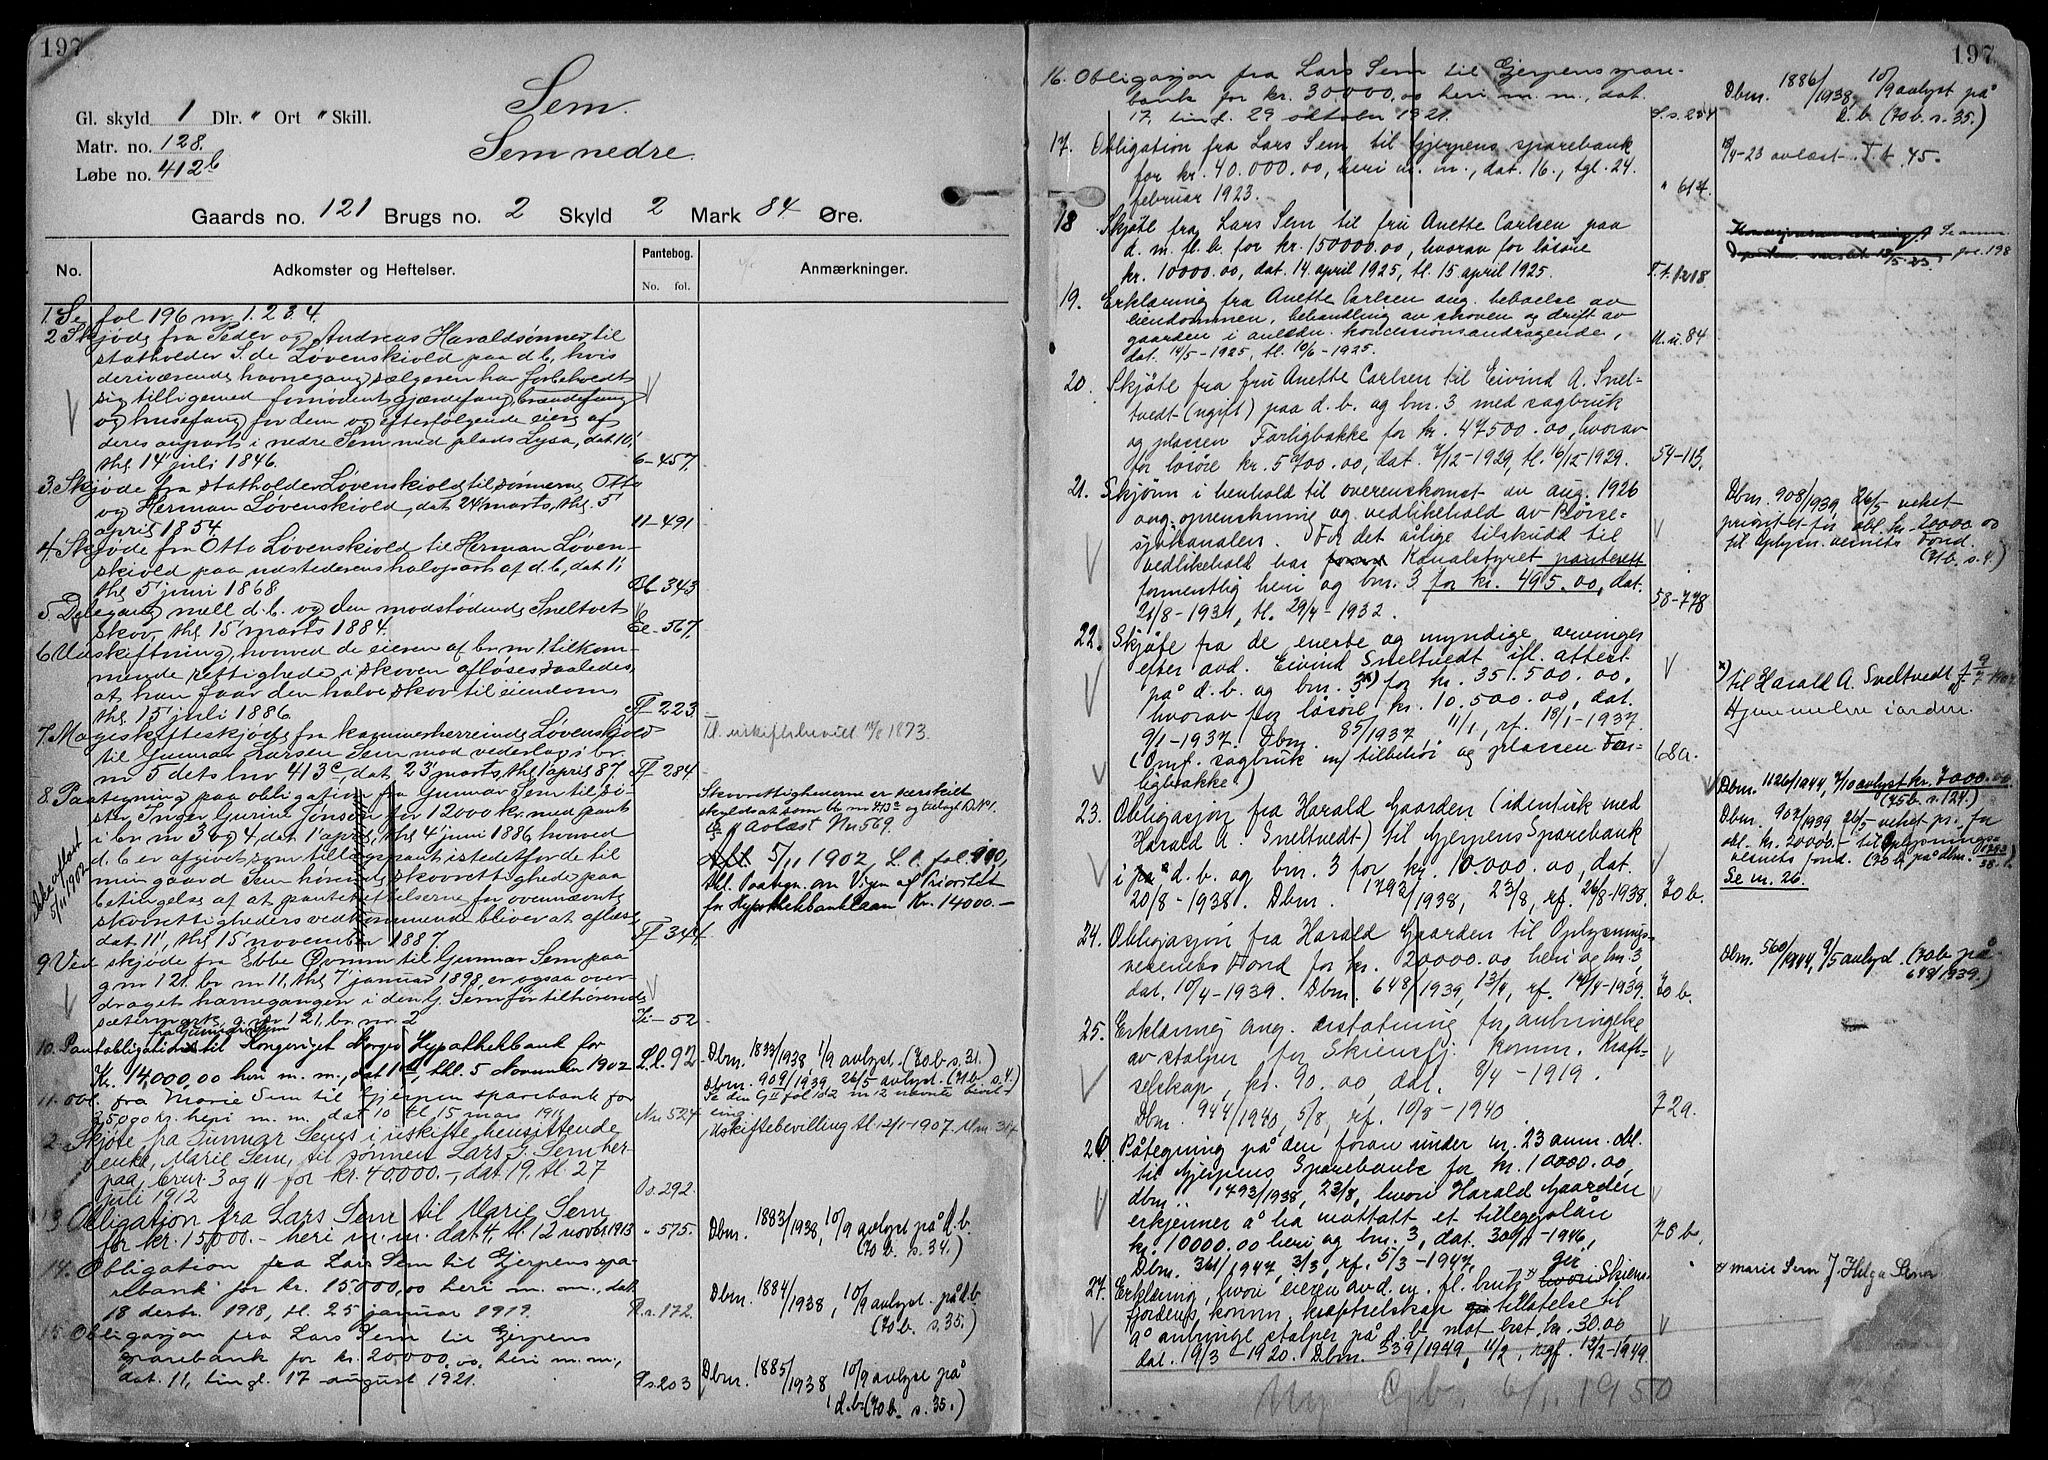 197
Sem.
Gl. skyld 1 Dlr. " Ort " Skill.
Matr. no. 128.
Sem nedre.
Løbe no. 412b
Gaards no. 121 Brugs no. 2 Skyld 2 Mark 84 Øre.
No.
Adkomster og Heftelser.
Pantebog.
No. fol.
Anmærkninger.
1. Se fol 196 nr 1. 2 3. 4.
2 Skjøde fra Peder og Andreas Haraldsønner til
statholder S. de Løvenskiold paa d. b, hvis
deriværende havnegang sælgeren har forbeholdt
sig tilligemed fornødent gjærdefang, brændefang
og husefang for dem og efterfølgende eiere af
deres anpart i nedre Sem med plads Lysa, dat 10',
thl 14' juli 1846. 6-457.
3. Skjøde fra statholder Løvenskiold til sønnerne Otto
og Herman Løvenskiold, dat 24' marts, thl. 5'
april 1854. 11-491
4. Skjøde fra Otto Løvenskiold til Herman Løven-
skiold paa udstederens halvpart af d. b, dat 1',
thl 5' juni 1868. Ob-343
5. Delegang mell d. b. og den modstødende Sneltvet
skov, thl 15' marts 1884. Ee-567.
6 Udskiftning, hvorved de eieren af br. nr 1 tilkom-
mende rettigheder i skoven afløses saaledes,
at han faar den halve skov til eiendom
thl 15' juli 1886. Ff 223
7. Mageskifteskjøde fra kammerherreinde Løvenskiold
til Gunnar Larsen Sem mod vederlag i br.
nr 5 dets lnr 413c, dat 23' marts, thl 1' april 87. Ff 284.
Tl. uskiftebevild 1873.
8. Paategning paa obligation fra Gunnar Sem til sø-
ster Inger Gurine Jonsen for 12000 kr. med pant
i br. nr 3 og 4, dat 1' april, thl 4' juni 1886, hvorved
d. b er afgivet som tillægspant istedetfor de til
min gaard Sem hørende skovrettigheder paa
betingelse af at pantehæftelserne for ovennævnte
skovrettigheders vedkommende bliver at aflæse
dat 11', thl 15' november 1887. Ff 341.
Skovrettighederne er særskilt
Avlæst Nn 569.
5/11 1902, L. l. fol. 90,
thl. Paategn. om Vigen af Prioritet
for Hypothekbanklaan Kr. 14000.-
5/11 1902
9 Ved skjøde fra Ebbe til Gunnar Sem paa
g nr 121. br nr 11, thl 7' januar 1898, er ogsaa over-
draget havnegangen i den G. Sem før tilhørende
sætermark, g. nr 121, br. nr. 2 Ii-52
fra Gunnar Sem
10. Pantobligation til Kongeriget Norges Hypothekbank for
Kr. 14,000,00 heri m. m., dat 1st, thl. 5 November 1902 L. l. 92
Dbm. 1832/1938, 1/9 avlyst. (70b. s. 31.)
Dbm. 909/1939 26/5 avlyst. (71b. s. 4.)
11. obl. fra Marie Sem til Gjerpen sparebank for
25000 kr. heri m. m. dat 10 tl. 15 mars 1911 Nn. 524
Uskiftebevilling tl 12/1-1907, Mm. 314
2. Skjøte fra Gunnar Sems i uskifte hensittende
enke, Marie Sem, til sønnen Lars G. Sem her-
paa, brnr. 3 og 11 for kr. 40.000.-, dat. 19, tl. 27
juli 1912 Oo. 292.
13. Obligation fra Lars Sem til Marie Sem
for kr. 15.000.- heri m. m. dat 4, tl. 12 novbr. 1913 " 575.
Dbm. 1883/1938, 10/9 avlyst på d. b.
(70 b. s. 34.)
14. Obligation fra Lars Sem til Gjerpens spa-
rebank for kr. 15.000,00 heri m. m., dat.
18 desbr. 1918, tl. 25 januar 1919. R. r. 172.
Dbm. 1884/1938, 10/9 avlyst på d. b.
(70 b. s. 35.)
15. Obligasjon fra Lars Sem til Gjerpens
sparebank for kr. 20.000,00, heri m. m.,
dat. 11, tingl. 17 august 1921. S. s. 203
Dbm. 1885/1938 10/9 avlyst på
d. b. (70 b. s. 35.)
197
16. Obligasjon fra Lars Sem til Gjerpens spare-
bank for kr. 30.000,00 heri m. m., dat.
17, tingl. 29 oktober 1921. S. s. 254
Dbm. 1886/1938, 10/9 avlyst på
d. b. (70 b. s. 35.)
17. Obligation fra Lars Sem til Gjerpens sparebank
for kr. 40.000.00, heri m. m., dat. 16., tgl. 24.
februar 1923. " 614.
4-23 avlæst. T. t. 45.
18. Skjøte fra Lars Sem til fru Anette Carlsen paa
d. m. fl. b. for kr. 150000.00, hvorav for løsøre
kr. 10000.00, dat. 14 april 1925, tl. 15 april 1925. T. t. 1218
Se anm.
fol. 198
19. Erklæring fra Anette Carlsen ang. beboelse av
eiendommen, behandling av skoven og drift av
gaarden i anledn. koncessionsandragende,
dat. 14/5-1925, tl. 10/6-1925. U. u. 84
20. Skjøte fra fru Anette Carlsen til Eivind A. Snel-
tvedt (ugift) paa d. b. og bnr. 3 med sagbruk
og plassen Farligbakke for kr. 47500.00, hvorav
for løsøre kr. 5700.00, dat. 7/12-1929, tl. 16/12-1929. 54-113.
21. Skjønn i henhold til overenskomst av aug. 1926
ang. oprenskning og vedlikehold av Børse-
sjøkanalen. For det årlige tilskudd til
vedlikehold har Kanalstyret panterett
formentlig heri og bnr. 3 for kr. 495.00, dat.
21/8-1931, tl. 29/4-1932. 58-778
Dbm. 908/1939, 26/5 veket
prioritet for obl. kr. 20000.00
til Oplysn. vesnets Fond.
(71b. s. 4.)
22. Skjøte fra de eneste og myndige arvinger
efter avd. Eivind Sneltvedt ifl. attest
på d. b. og bnr. 3 x) for kr. 351.500.00.
hvorav for løsøre kr. 10.500.00, dat.
9/1-1937. Dbm. 85/1937, 11/1, rf. 18/1-1937.
(Omf. sagbruk m/ tilbehør og plassen Far-
ligbakke.) 68a.
x) til Harald A. Sneltvedt f. 9/7-1904.
Hjemmelen i orden.
23. Obligasjon fra Harald Gaarden (identisk med
Harald A. Sneltvedt) til Gjerpens Sparebank
i d. b. og bnr. 3 for kr. 10.000.00, dat.
20/8-1938. Dbm. 1793/1938, 23/8, rf. 26/8-1938. 70 b.
Dbm. 1126/1944, 7/10 avlyst kr. 7000.00
(75b. s. 124.)
Dbm. 907/1939 26/5 veket pr. for
obl. kr. 20000.- til Oplysnings-
vesnets fond. (70 b. på dbm. 1793/38.)
Se nr. 26.
24. Obligasjon fra Harald Gaarden til Oplysnings-
vesenets Fond for kr. 20000.00 heri og bnr. 3,
dat. 10/4-1939. Dbm. 648/1939, 13/4, rf. 14/4-1939. 70 b.
Dbm. 560/1944, 9/5 avlyst. (70b. på
648/1939.)
25. Erklæring ang. erstatning for anbringelse
av stolper for Skiensfj. komm. kraft-
selskap, kr. 90.00, dat. 8/4-1919.
Dbm. 944/1940, 5/8, rf. 10/8-1940. 72a.
26. Påtegning på den foran under nr. 23 anm. obl.
til Gjerpens Sparebank for kr. 10000.00,
dbm. 1793/1938, 23/8, hvori Harald Gaarden
erkjenner å ha mottatt et tilleggslån
kr. 10000.00 heri og bnr. 3, dat. 30/11-1946,
Dbm. 361/1947, 3/3, rf. 5/3-1947. 70 b.
27. Erklæring, hvori eieren av d. m. fl. bruk x) gir Skiens-
fjordens komm. kraftselskap tillatelse til
å anbringe stolper på d. b. mot erst. kr. 30.00
dat. 19/3-1920. Dbm. 339/1949, 11/2, rgf. 12/2-1949.
x) Marie Sem f. Helga Sem
Ny Gb. 6/11 1950